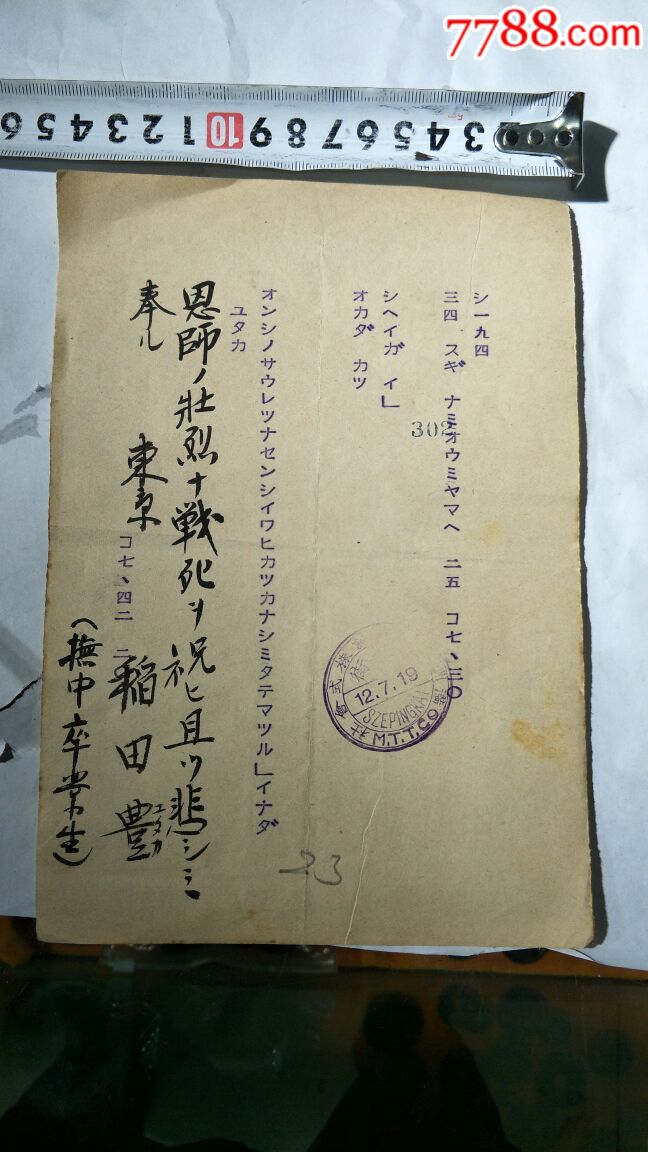 7788.com
3 4 5 6 7 8 9 10 1 2 3 4 5 6
シ一九四
三四 スギ ナミオウミヤマヘ 二五 コ七、三〇
302
シヘイガイ」
オカダ カツ
12.7.19
SZEPINGKAI
M.T.T.Co
株式會社
オンシノサウレツナセンシイワヒカツカナシミタテマツル」イナダ
ユタカ
恩師ノ壯烈ナ戦死ヲ祝ヒ且ツ悲シミ
奉ル
東京
コ七、四二 二
稲田豊
ユタカ
(撫中卒業生)
23